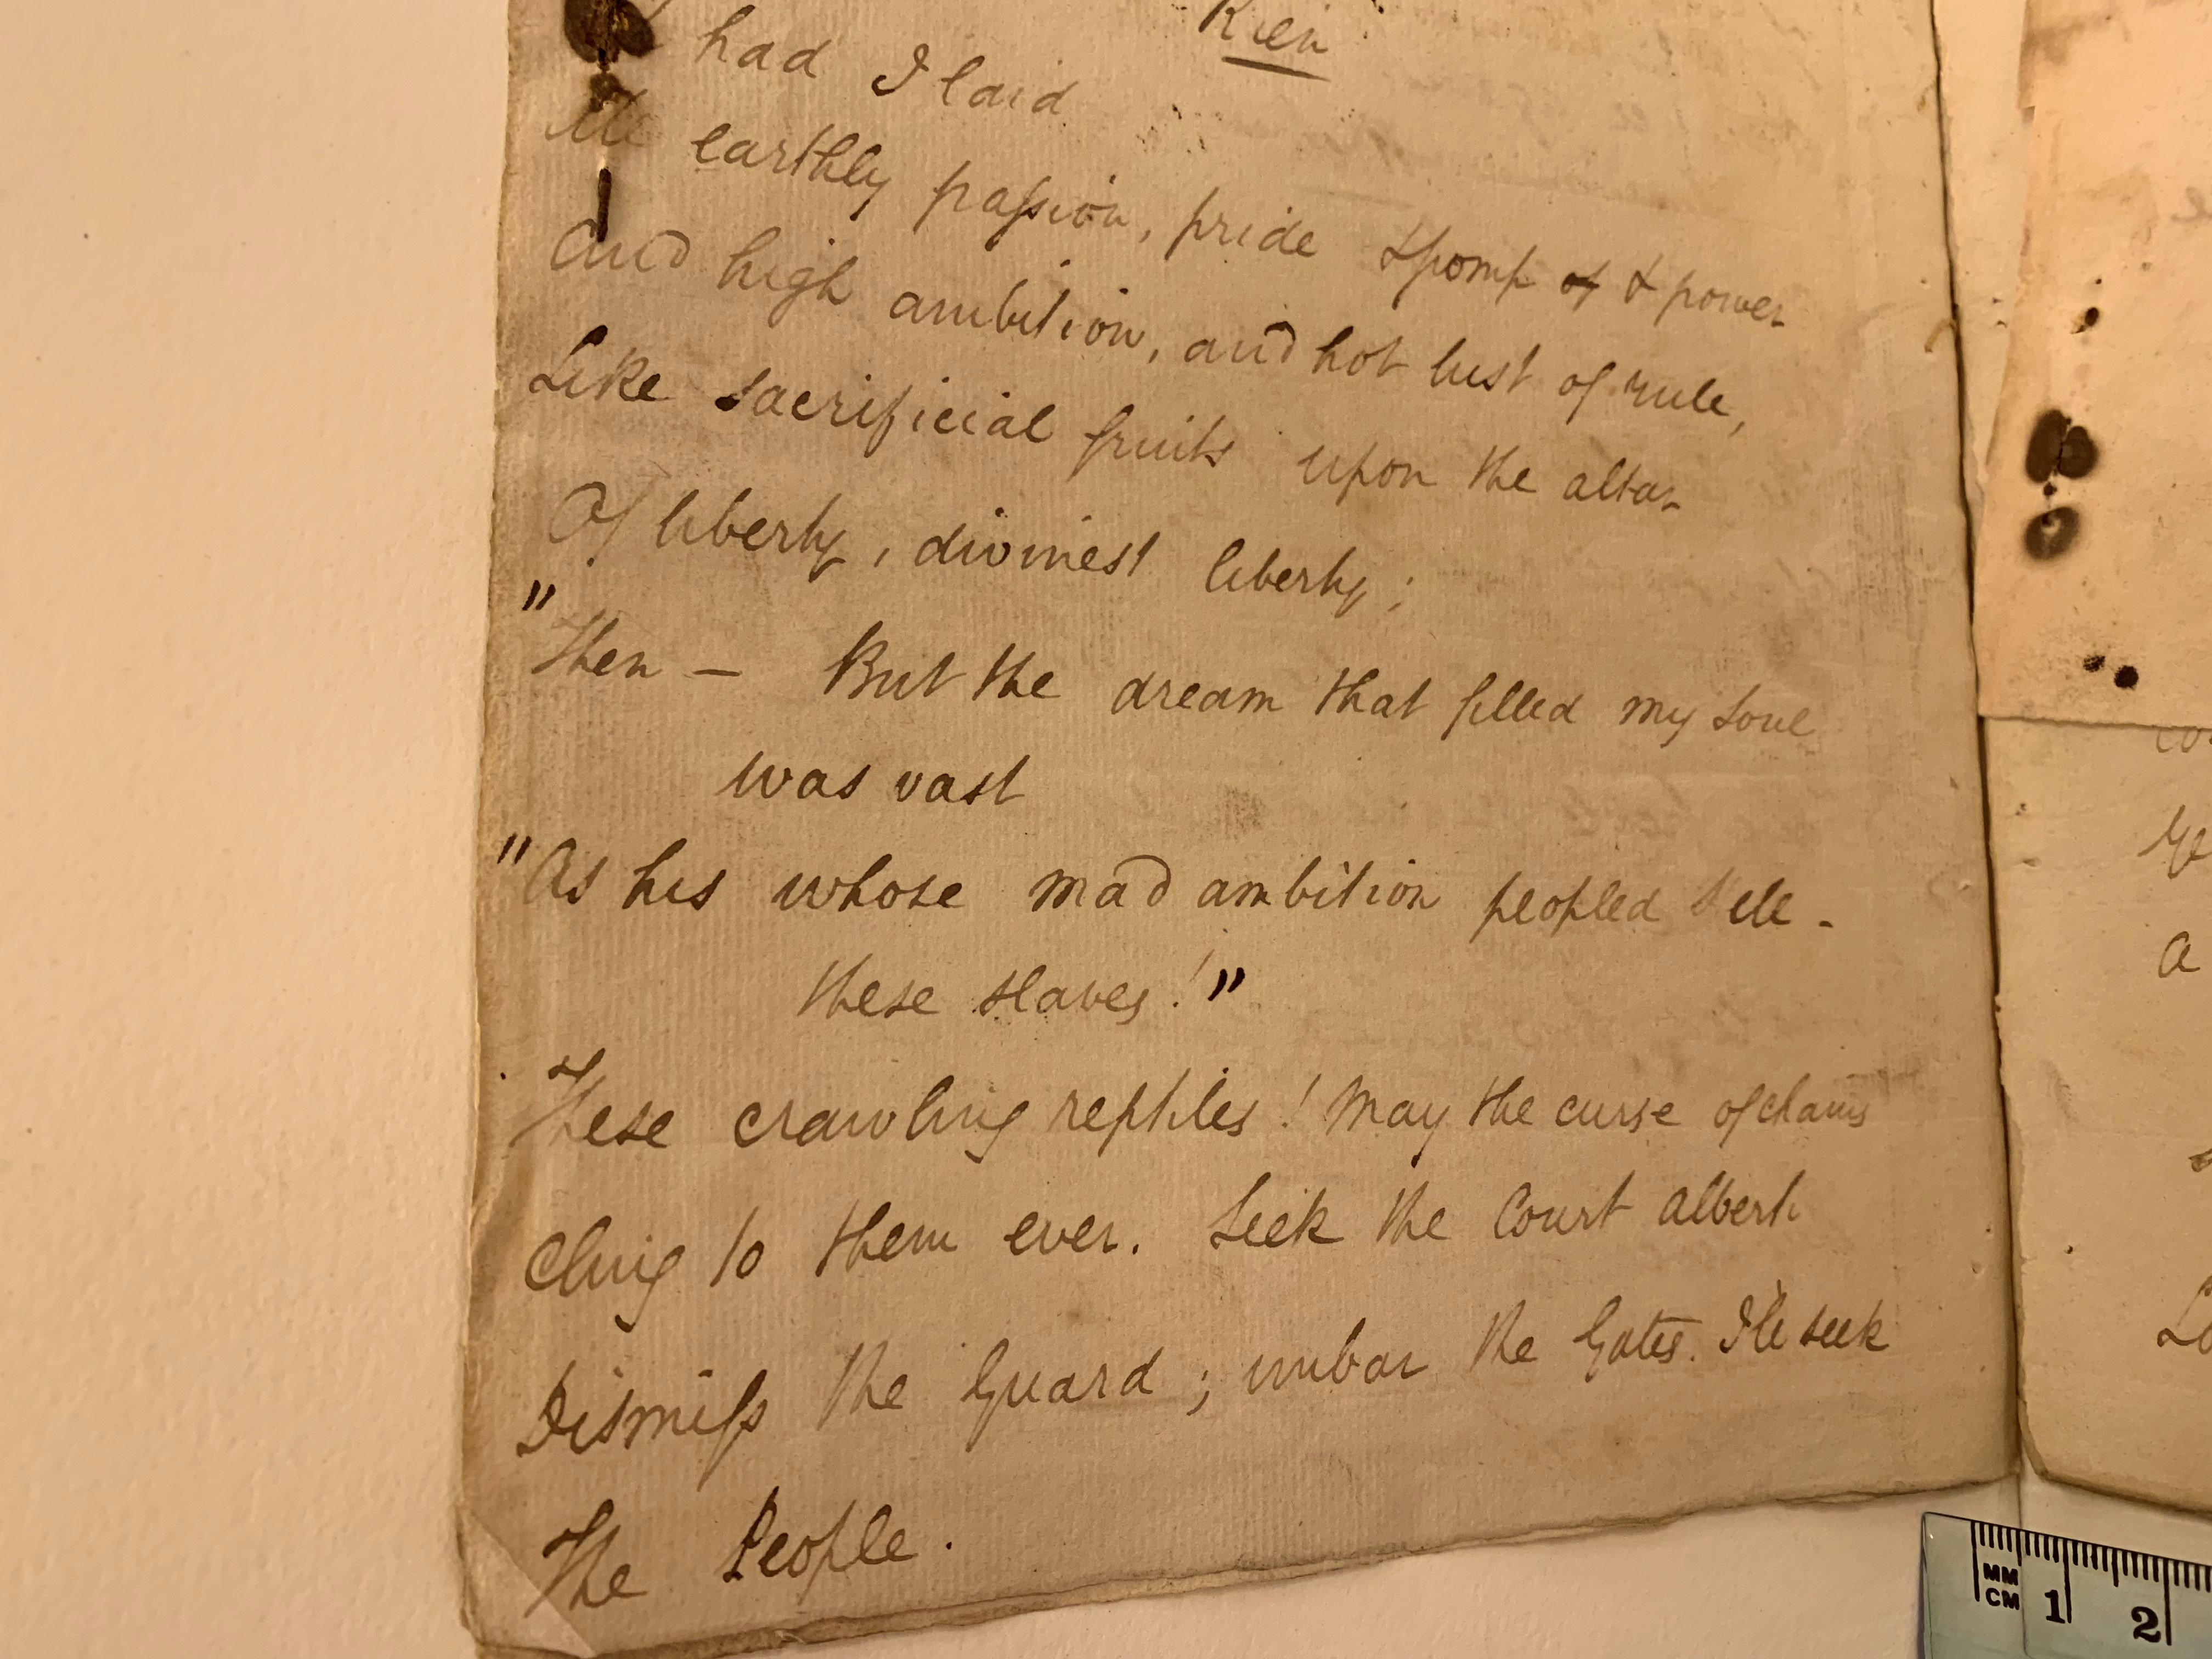 Rien
had I laid
All earthly passion, pride & pomp of & power
And high ambition, and hot lust of rule,
Like sacrificial fruits upon the altar
Of liberty, divinest liberty;
"Then — But the dream that filled my soul
was vast
"As his whose mad ambition peopled Hell -
these slaves!"
These crawling reptiles! May the curse of chains
Cling to them ever. Seek the Court Alberti
Dismiss the Guard; unbar the Gates. I'le seek
The People.
Ye
A
MM
CM
1
2